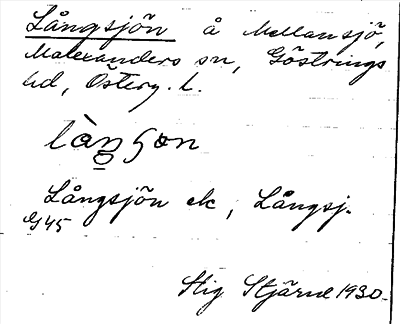 Långsjön å Mellansjö,
Malexanders sn, Göstrings
hd, Österg. l.
làŋ̠son
Långsjön ek, Långsj.
G45
Stig Stjärne 1930